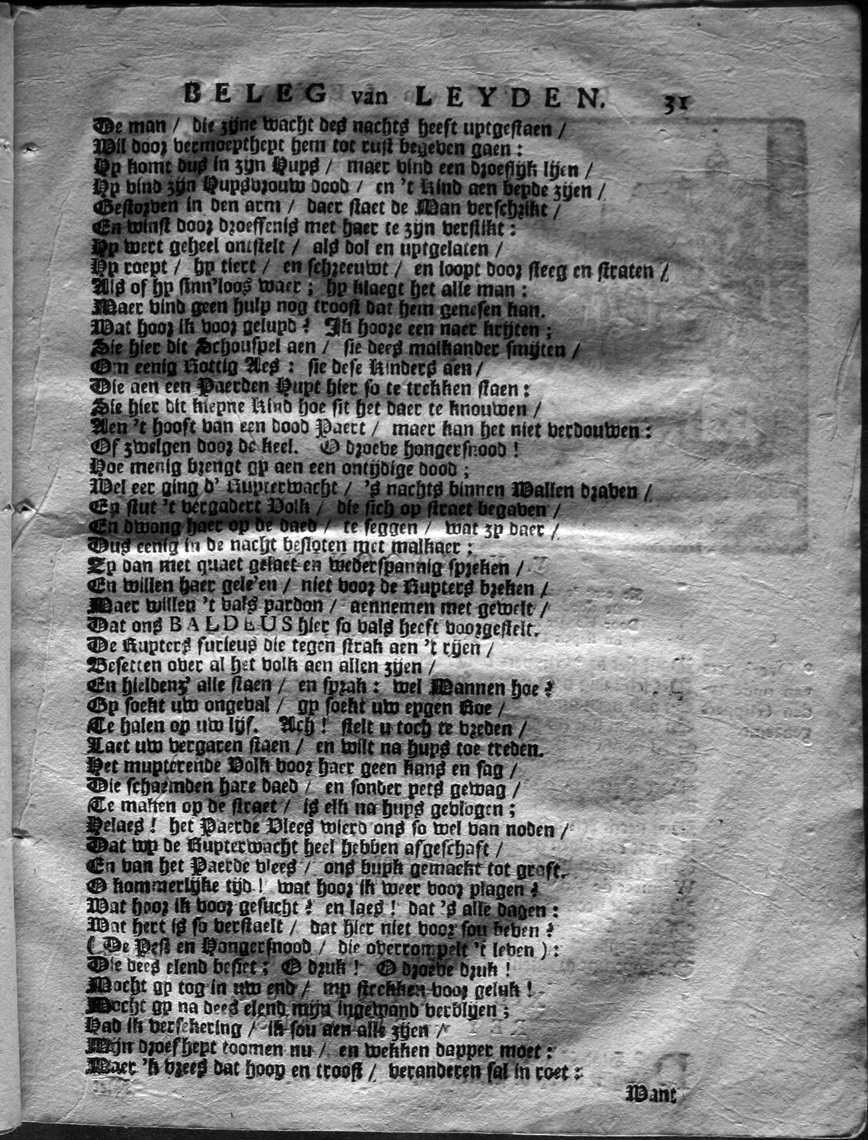 BELEG van LEYDEN. 31
De man / die zijne wacht des nachts heeft uytgestaen /
Wil door vermoeytheyt hem tot rust begeven gaen :
Hy komt dus in zijn Huys / maer vind een droeflijk lijen /
Hy vind zijn Huysvrouw dood / en 't Kind aen beyde zijen /
Gestorven in den arm / daer staet de Man verschrikt /
En winst door droeffenis met haer te zijn verstikt :
Hy wert geheel ontstelt / als dol en uytgelaten /
Hy roept / hy tiert / en schreeuwt / en loopt door steeg en straten /
Als of hy sinn'loos waer ; hy klaegt het alle man :
Maer vind geen hulp nog troost dat hem genesen kan.
Wat hoor ik voor geluyd ? Ik hoore een naer krijten ;
Sie hier dit Schouspel aen / sie dees malkander smijten /
Om eenig Rottig Aes : sie dese Kinders aen /
Die aen een Paerden Huyt hier so te trekken staen :
Sie hier dit kleyne Kind hoe sit het daer te knouwen /
Aen 't hooft van een dood Paert / maer kan het niet verdouwen :
Of zwelgen door de keel. O droeve hongersnood !
Hoe menig brengt gy aen een ontijdige dood ;
Wel eer ging d' Ruyterwacht / 's nachts binnen Wallen draven /
En stut 't vergadert Volk / die sich op straet begaven /
En dwong haer op de daed / te seggen / wat zy daer /
Dus eenig in de nacht besloten met malkaer :
Zy dan met quaet gelaet en wederspannig spreken /
En willen haer gele'en / niet voor de Ruyters breken /
Maer willen 't vals pardon / aennemen met gewelt /
Dat ons BALDEUS hier so vals heeft voorgestelt.
De Ruyters furieus die tegen strak aen 't rijen /
Besetten over al het volk aen allen zijen /
En hieldenz' alle staen / en sprak : wel Mannen hoe ?
Gy soekt uw ongeval / gy soekt uw eygen Roe /
Te halen op uw lijf. Ach ! stelt u toch te vreden /
Laet uw vergaren staen / en wilt na huys toe treden.
Het muyterende Volk voor haer geen kans en sag /
Die schaemden hare daed / en sonder yets gewag /
Te maken op de straet / is elk na huys gevlogen ;
Helaes ! het Paerde Vlees wierd ons so wel van noden /
Dat wy de Ruyterwacht heel hebben afgeschaft /
En van het Paerde vlees / ons buyk gemaekt tot graft.
O kommerlijke tijd ! wat hoor ik weer voor plagen ?
Wat hoor ik voor gesucht ? en laes ! dat 's alle dagen :
Wat hert is so verstaelt / dat hier niet voor sou beven ?
( De Pest en Hongersnood / die overrompelt 't leven ) :
Die dees elend besiet ; O druk ! O droeve druk !
Mocht gy tog in uw end / my strekken voor geluk !
Mocht gy na dees elend mijn ingewand verblijen ;
Had ik versekering / ik sou aen alle zijen /
Mijn droefheyt toomen nu / en wekken dapper moet :
Maer 'k vrees dat hoop en troost / veranderen sal in roet :
Want